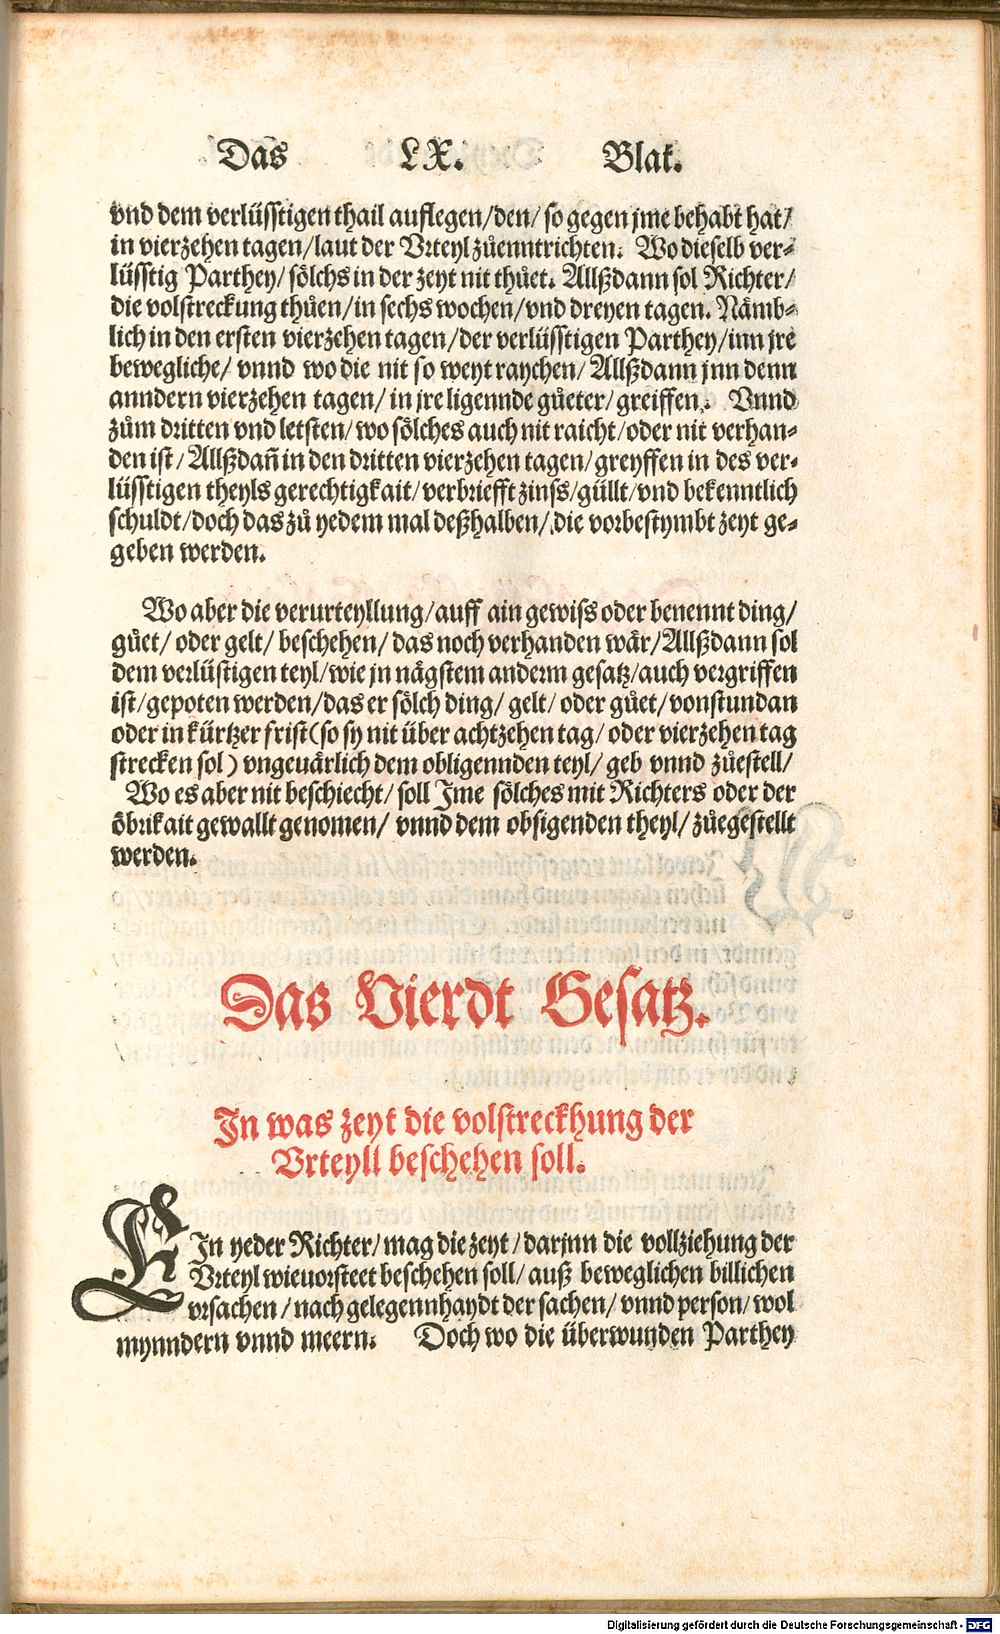 Das LX. Blat.
vnd dem verlüsstigen thail auflegen/den/ so gegen jme behabt hat/
in vierzehen tagen/laut der Vrteyl zůenntrichten. Wo dieselb ver-
lüsstig Parthey/ sölchs in der zeyt nit thůet. Allßdann sol Richter/
die volstreckung thůen/in sechs wochen/vnd dreyen tagen. Nämb-
lich in den ersten vierzehen tagen/der verlüsstigen Parthey/inn jre
bewegliche/ vnnd wo die nit so weyt raychen/ Allßdann jnn denn
anndern vierzehen tagen/ in jre ligennde gůeter/ greiffen. Vnnd
zům dritten vnd letsten/ wo sölches auch nit raicht/oder nit verhan-
den ist/ Allßdañ in den dritten vierzehen tagen/greyffen in des ver-
lüsstigen theyls gerechtigkait/verbriefft zinss/güllt/vnd bekenntlich
schuldt/doch das zů yedem mal deßhalben/ die vorbestymbt zeyt ge-
geben werden.
Wo aber die verurteyllung/auff ain gewiss oder benennt ding/
gůet/ oder gelt/ beschehen/ das noch verhanden wär/Allßdann sol
dem verlüstigen teyl/wie jn nägstem anderm gesatz/auch vergriffen
ist/gepoten werden/das er sölch ding/ gelt/ oder gůet/ vonstundan
oder in kürtzer frist(so sy nit über achtzehen tag/ oder vierzehen tag
strecken sol) vngeuärlich dem obligennden teyl/ geb vnnd zůestell/
Wo es aber nit beschiecht/ soll Jme sölches mit Richters oder der
öbrikait gewallt genomen/ vnnd dem obsigenden theyl/ zůegestellt
werden.
Das Vierdt Gesatz.
In was zeyt die volstreckhung der
Vrteyll beschehen soll.
EIn yeder Richter/ mag die zeyt/ darjnn die vollziehung der
Vrteyl wieuorsteet beschehen soll/ auß beweglichen billichen
vrsachen/ nach gelegennhaydt der sachen/ vnnd person/ wol
mynndern vnnd meern. Doch wo die überwunden Parthey
Digitalisierung gefördert durch die Deutsche Forschungsgemeinschaft - DFG